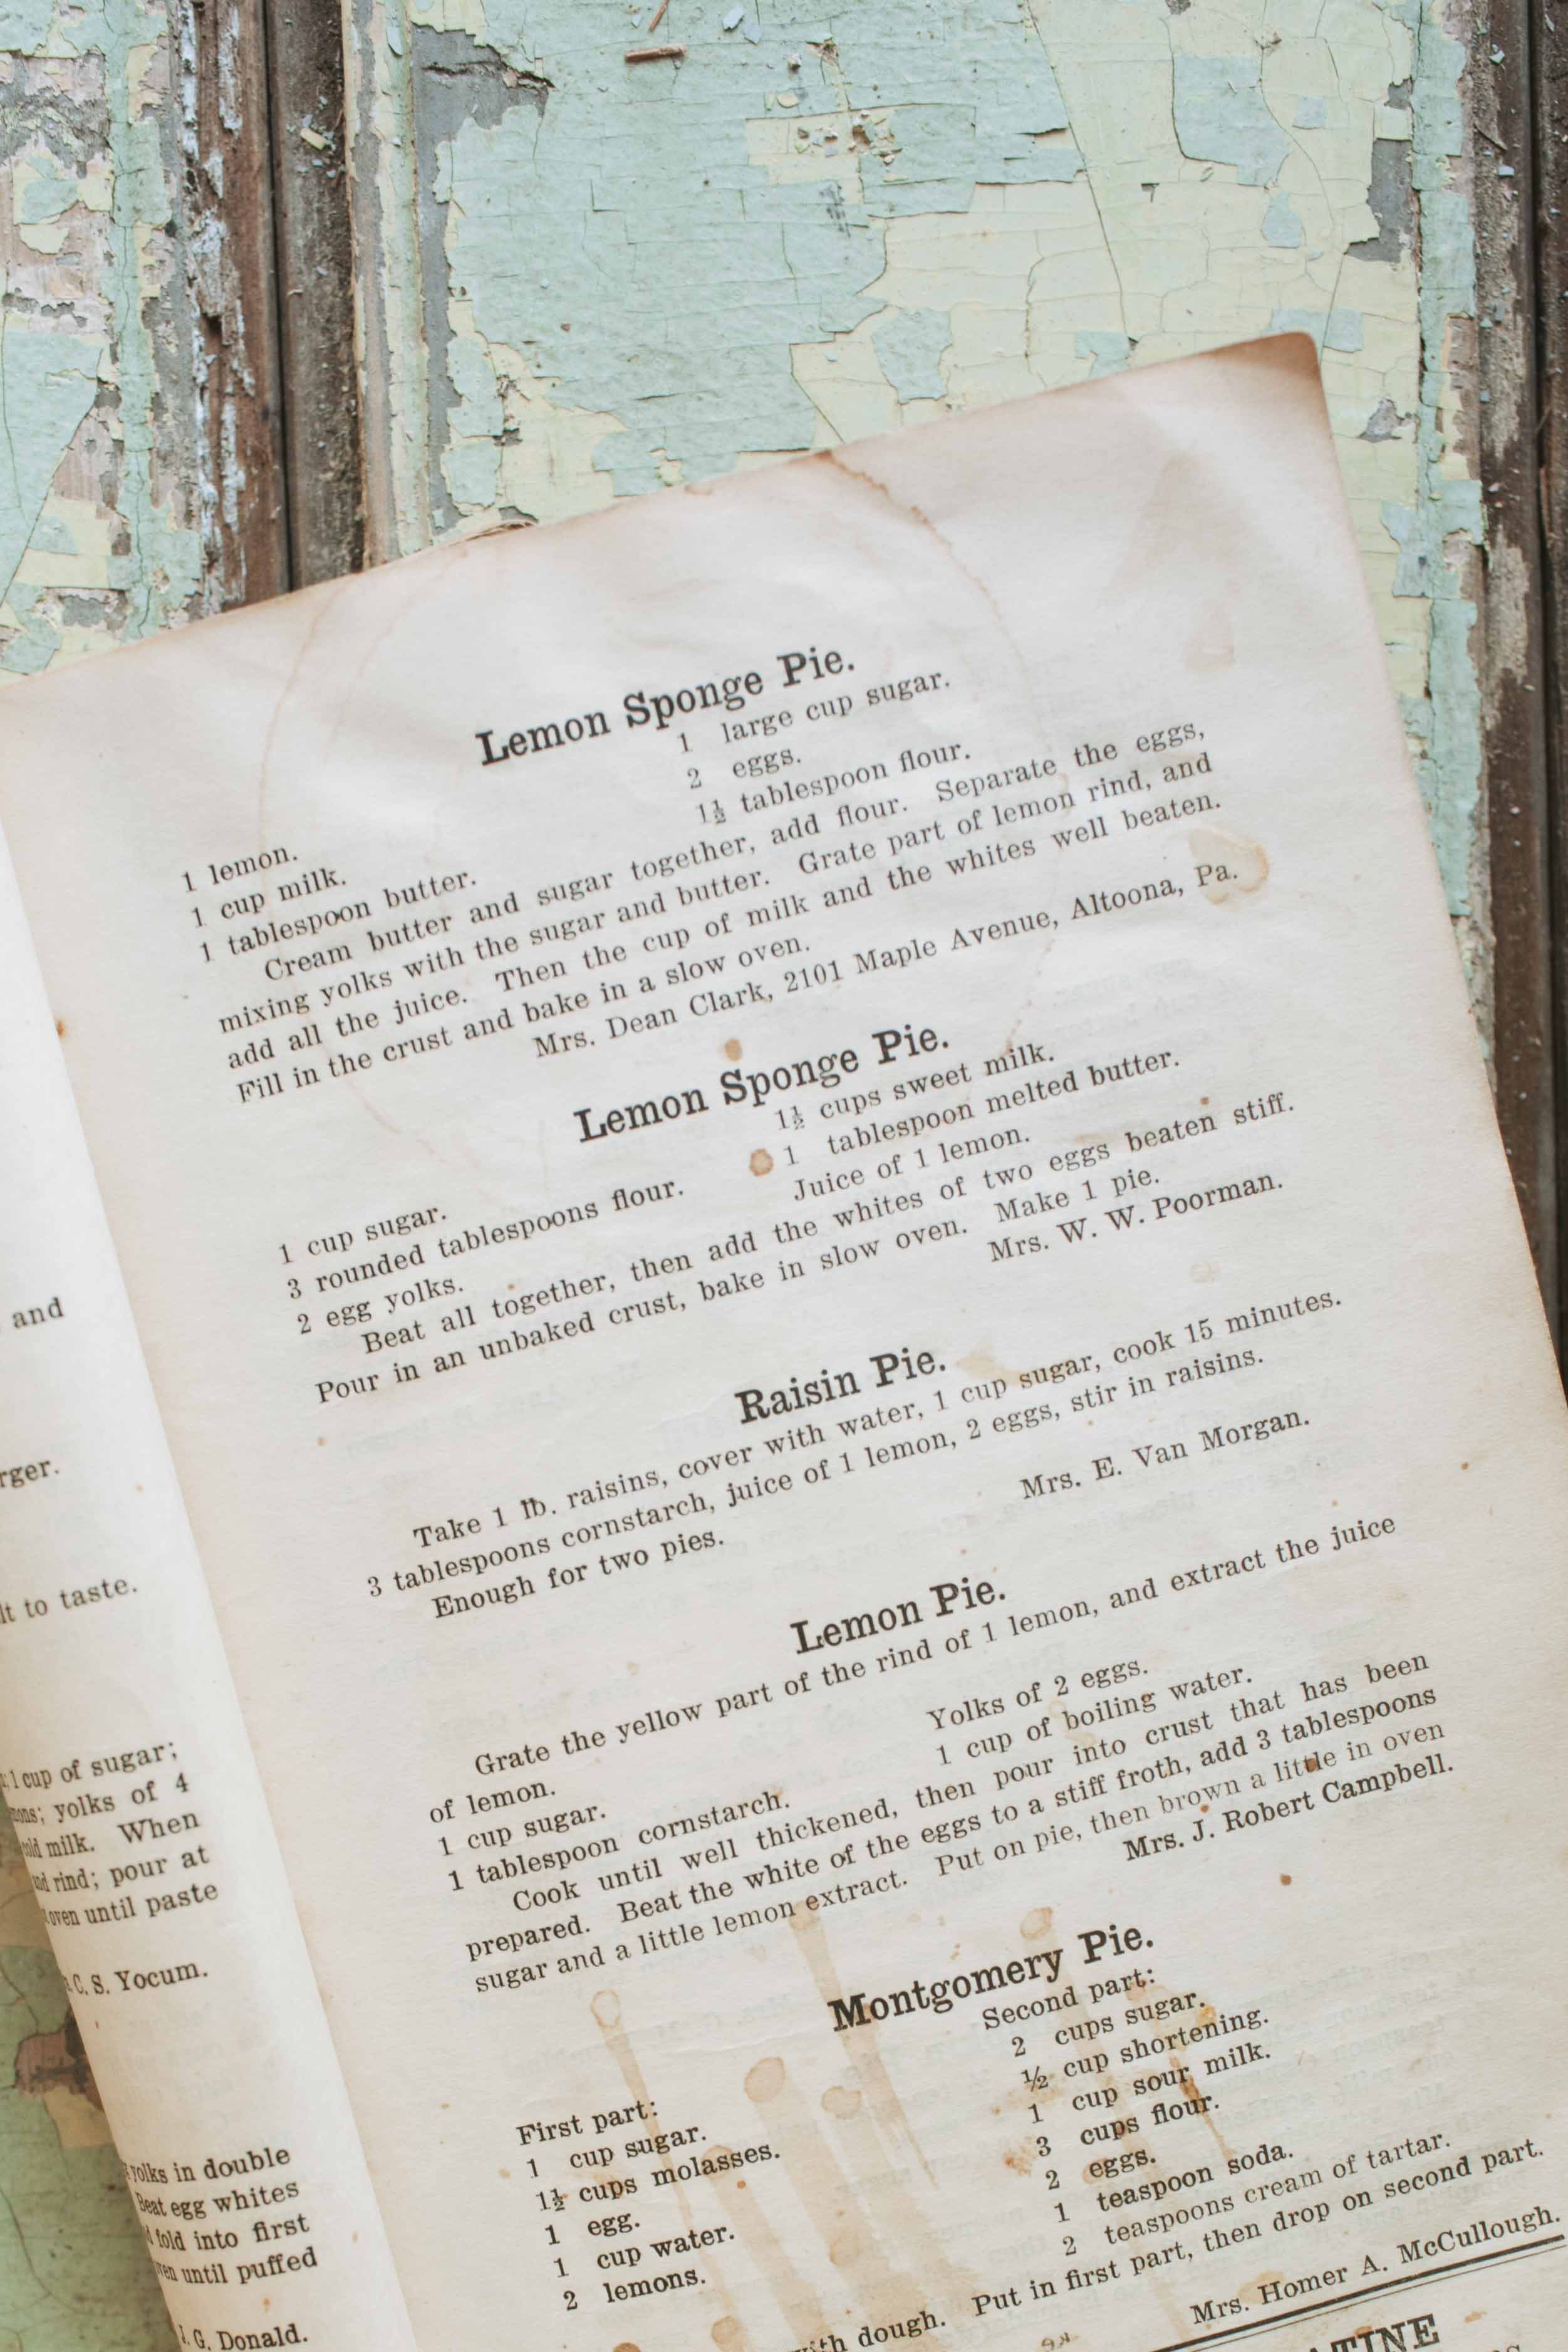 and
rger.
lt to taste.
1 cup of sugar;
yolks of 4
milk. When
rind; pour at
oven until paste
C. S. Yocum.
yolks in double
Beat egg whites
fold into first
until puffed
G. Donald.
Lemon Sponge Pie.
1 lemon.
1 cup milk.
1 tablespoon butter.
1 large cup sugar.
2 eggs.
1½ tablespoon flour.
Cream butter and sugar together, add flour. Separate the eggs,
mixing yolks with the sugar and butter. Grate part of lemon rind, and
add all the juice. Then the cup of milk and the whites well beaten.
Fill in the crust and bake in a slow oven.
Mrs. Dean Clark, 2101 Maple Avenue, Altoona, Pa.
Lemon Sponge Pie.
1 cup sugar.
3 rounded tablespoons flour.
2 egg yolks.
1½ cups sweet milk.
1 tablespoon melted butter.
Juice of 1 lemon.
Beat all together, then add the whites of two eggs beaten stiff.
Pour in an unbaked crust, bake in slow oven. Make 1 pie.
Mrs. W. W. Poorman.
Raisin Pie.
Take 1 lb. raisins, cover with water, 1 cup sugar, cook 15 minutes.
3 tablespoons cornstarch, juice of 1 lemon, 2 eggs, stir in raisins.
Enough for two pies.
Mrs. E. Van Morgan.
Lemon Pie.
Grate the yellow part of the rind of 1 lemon, and extract the juice
of lemon.
1 cup sugar.
1 tablespoon cornstarch.
Yolks of 2 eggs.
1 cup of boiling water.
Cook until well thickened, then pour into crust that has been
prepared. Beat the white of the eggs to a stiff froth, add 3 tablespoons
sugar and a little lemon extract. Put on pie, then brown a little in oven
Mrs. J. Robert Campbell.
Montgomery Pie.
First part:
1 cup sugar.
1½ cups molasses.
1 egg.
1 cup water.
2 lemons.
Second part:
2 cups sugar.
½ cup shortening.
1 cup sour milk.
3 cups flour.
2 eggs.
1 teaspoon soda.
2 teaspoons cream of tartar.
with dough. Put in first part, then drop on second part.
Mrs. Homer A. McCullough.